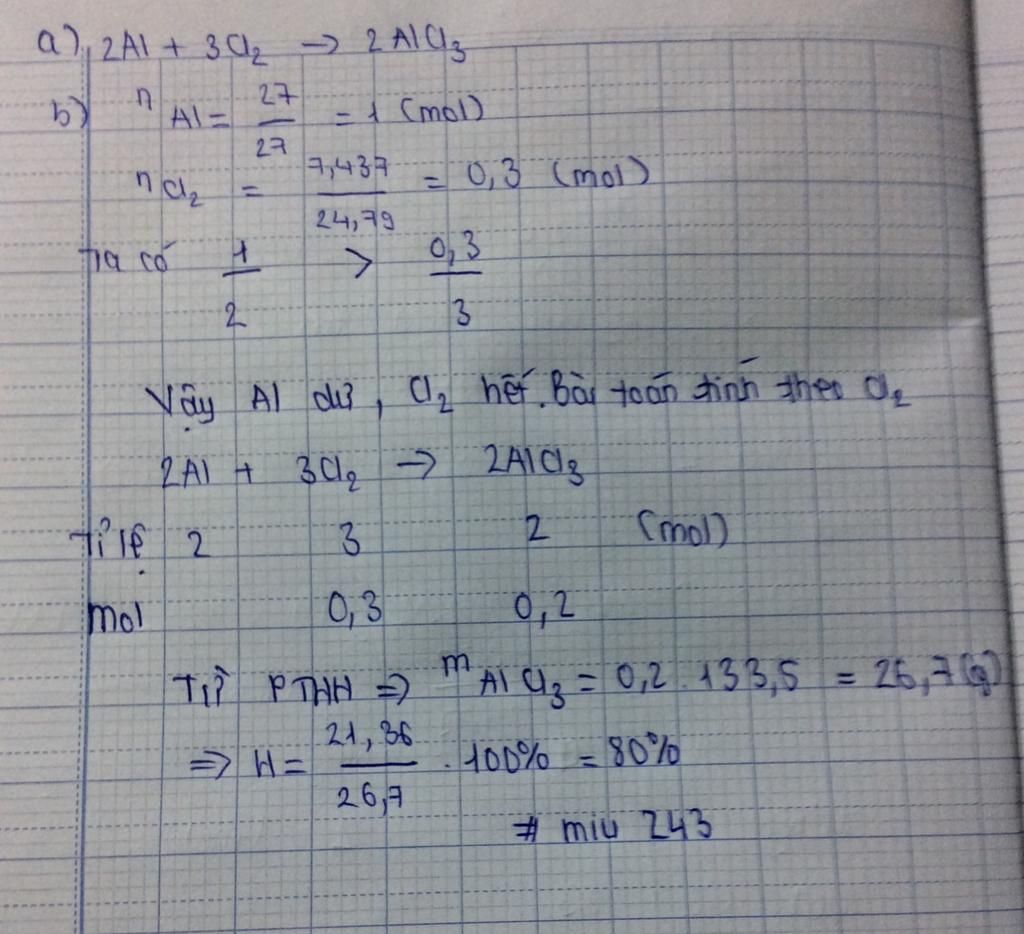 a) 2Al + 3Cl₂ → 2AlCl₃
b) nAl = 27/27 = 1 (mol)
nCl₂ = 7,437/24,79 = 0,3 (mol)
Ta có 1/2 > 0,3/3
Vậy Al dư, Cl₂ hết. Bài toán tính theo Cl₂
2Al + 3Cl₂ → 2AlCl₃
Tỉ lệ 2 3 2 (mol)
mol 0,3 0,2
Từ PTHH => mAlCl₃ = 0,2 . 133,5 = 26,7 (g)
=> H = 21,36/26,7 . 100% = 80%
# miu 243